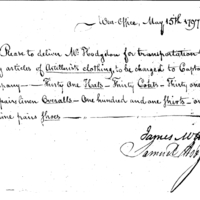 War Office, May 15th 1797
Please to deliver Mr Hodgdon for transportation
articles of Artillerists clothing, to be charged to Capta
pany — Thirty One Hats — Thirty Coats — Thirty one
pairs linen Overalls — One hundred and one Shirts — 
ine pairs Shoes
James
Samuel